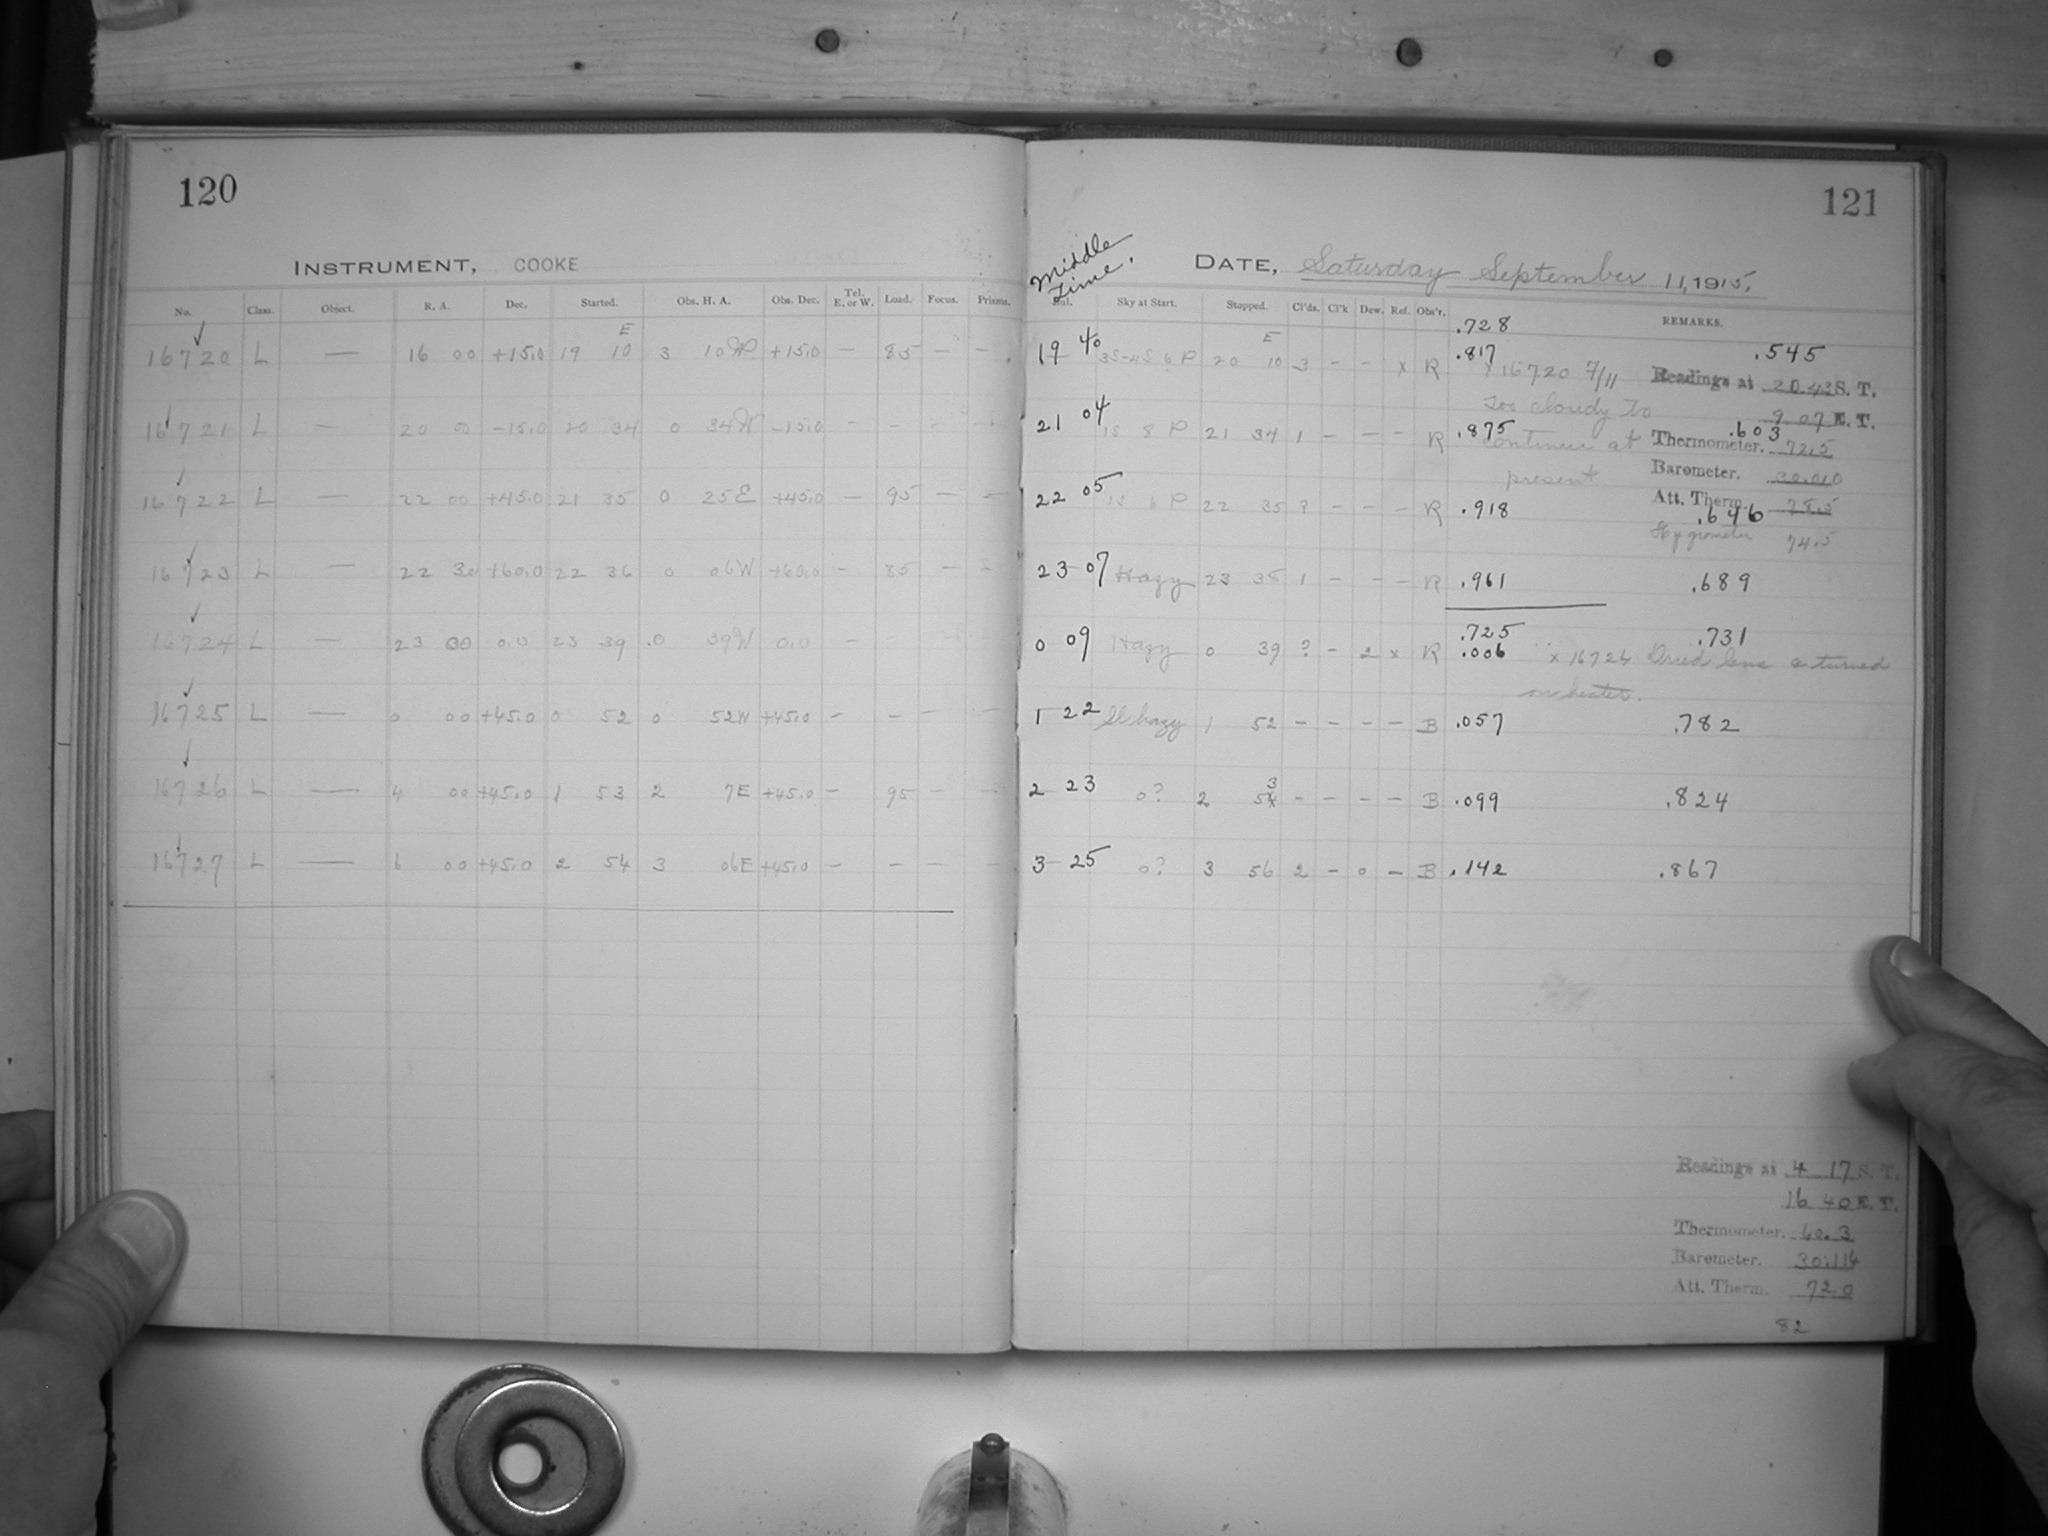 120
INSTRUMENT, COOKE
No. Class. Object. R. A. Dec. Started. Obs. H. A. Obs. Dec. Tel. E. or W. Load. Focus. Prisms.
E
16720 L — 16 00 +15.0 19 10 3 10W +15.0 — 85 — —
16721 L — 20 00 -15.0 20 34 0 34W -15.0 — — — —
16722 L — 22 00 +45.0 21 35 0 25E +45.0 — 95 — —
16723 L — 22 30 +60.0 22 36 0 06W +60.0 — 85 — —
16724 L — 23 00 0.0 23 39 0 39W 0.0 —
16725 L — 0 00 +45.0 0 52 0 52W +45.0 — — — —
16726 L — 4 00 +45.0 1 53 2 7E +45.0 — 95 — —
16727 L — 6 00 +45.0 2 54 3 06E +45.0 — — — —
121
Middle
Time.
DATE, Saturday September 11, 1915.
Sky at Start. Stopped. Cl'ds. Cl'k Dew. Ref. Obs'r. REMARKS.
.728
E
19 40 3S-4S 6 P 20 10 3 — — x R .817 .545
x 16720 7/11
Readings at 20.43 S. T.
Too cloudy to
9 07 E. T.
21 04 1S 8 P 21 34 1 — — — R .875 .603
continue at
Thermometer. 72.5
present
Barometer. 30.010
22 05 1S 6 P 22 35 ? — — — R .918 .646
Att. Therm. 78.5
Hygrometer 74.5
23 07 Hazy 23 38 1 — — — R .961 .689
.725 .731
0 09 Hazy 0 39 ? — 2 x R .006
x 16724 Dried lens & turned
on heater.
1 22 Sl hazy 1 52 — — — — B .057 .782
2 23 0? 2 53 — — — — B .099 .824
3 25 0? 3 56 2 — 0 — B .142 .867
Readings at 4 17 S. T.
16 40 E. T.
Thermometer. 60.3
Barometer. 30.114
Att. Therm. 72.0
82